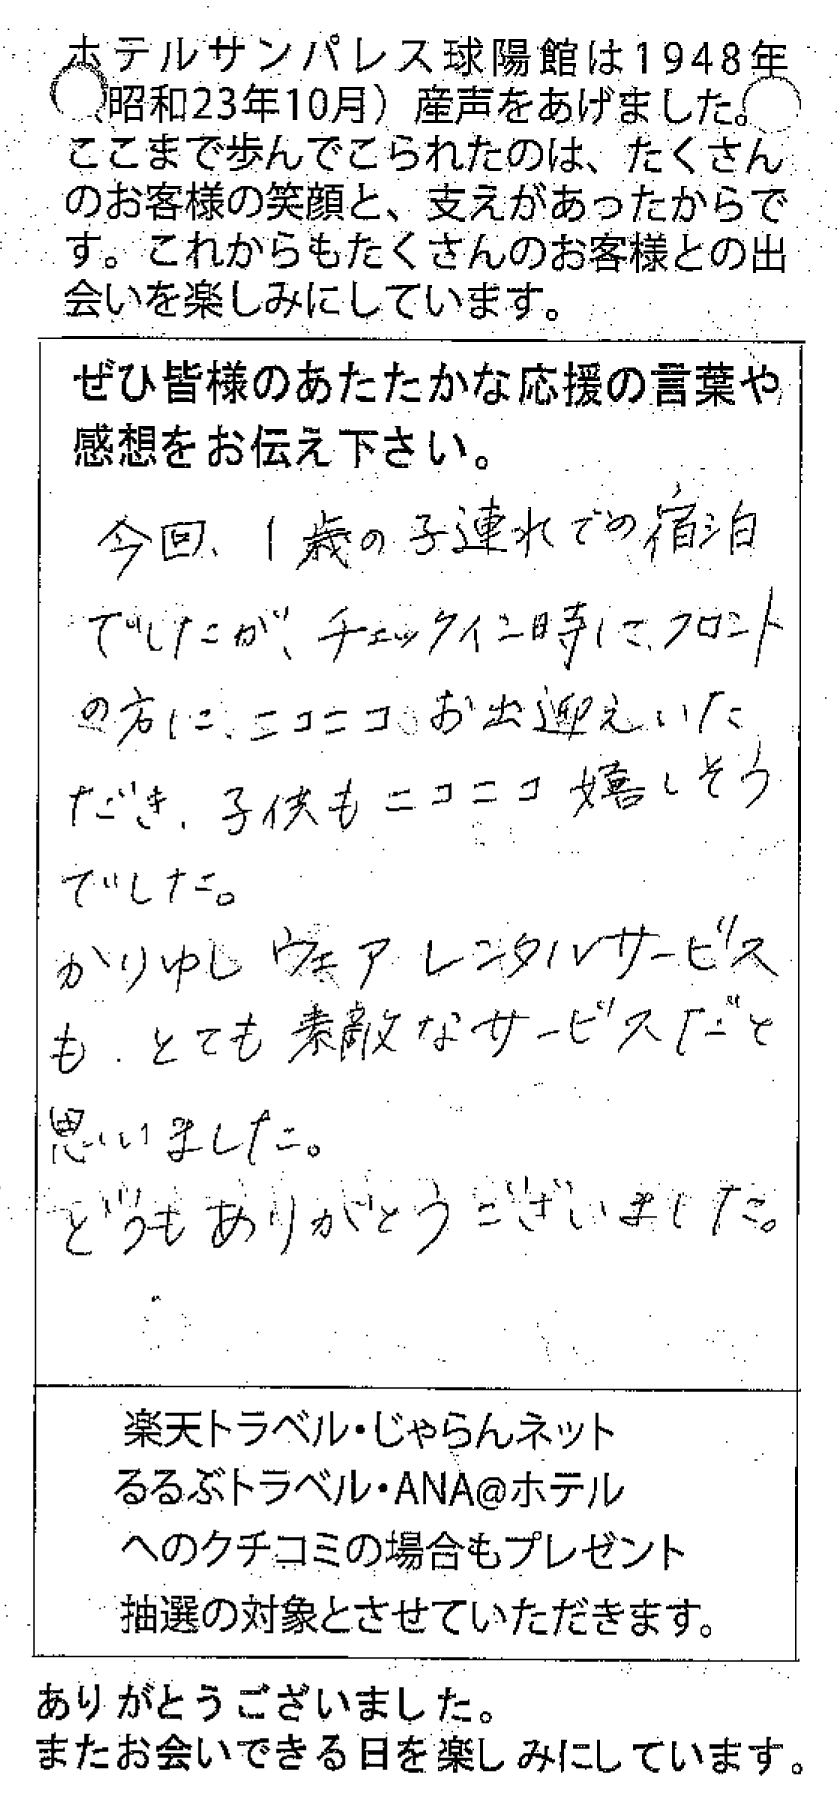 ホテルサンパレス球陽館は1948年
(昭和23年10月）産声をあげました。
ここまで歩んでこられたのは、たくさん
のお客様の笑顔と、支えがあったからで
す。これからもたくさんのお客様との出
会いを楽しみにしています。
ぜひ皆様のあたたかな応援の言葉や
感想をお伝え下さい。
今回、1歳の子連れでの宿泊
でしたが、チェックイン時に、フロント
の方に、ニコニコお出迎えいた
だき、子供もニコニコ嬉しそう
でした。
かりゆしウェアレンタルサービス
も、とても素敵なサービスだと
思いました。
どうもありがとうございました。
楽天トラベル・じゃらんネット
るるぶトラベル・ANA@ホテル
へのクチコミの場合もプレゼント
抽選の対象とさせていただきます。
ありがとうございました。
またお会いできる日を楽しみにしています。